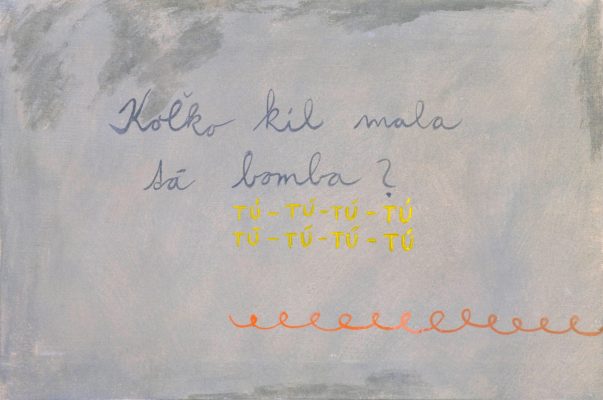 Koľko kíl mala
tá bomba?
TÚ-TÚ-TÚ-TÚ
TÚ-TÚ-TÚ-TÚ